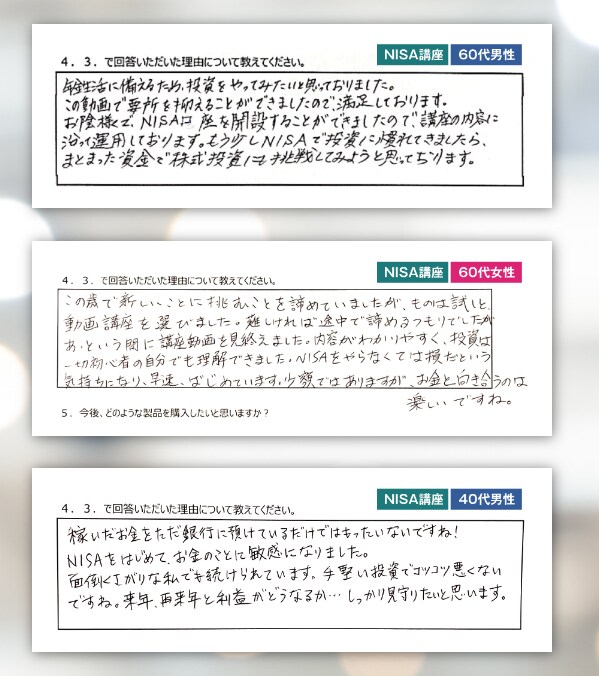 4．3．で回答いただいた理由について教えてください。
NISA講座 60代男性
年金生活に備えるため、投資をやってみたいと思っておりました。
この動画で要所を抑えることができましたので、満足しております。
お陰様で、NISA口座を開設することができましたので、講座の内容に
沿って運用しております。もう少しNISAで投資に慣れてきましたら、
まとまった資金で株式投資にも挑戦してみようと思っております。
4．3．で回答いただいた理由について教えてください。
NISA講座 60代女性
この歳で新しいことに挑むことを諦めていましたが、ものは試しと、
動画講座を選びました。難しければ途中で諦めるつもりでしたが
あっという間に講座動画を見終えました。内容がわかりやすく、投資は
一切初心者の自分でも理解できました。NISAをやらなくては損だという
気持ちになり、早速、はじめています。少額ではありますが、お金と向き合うのは
楽しいですね。
5．今後、どのような製品を購入したいと思いますか？
4．3．で回答いただいた理由について教えてください。
NISA講座 40代男性
稼いだお金をただ銀行に預けているだけではもったいないですね！
NISAをはじめて、お金のことに敏感になりました。
面倒くさがりな私でも続けられています。手堅い投資でコツコツ悪くない
ですね。来年、再来年と利益がどうなるか…しっかり見守りたいと思います。